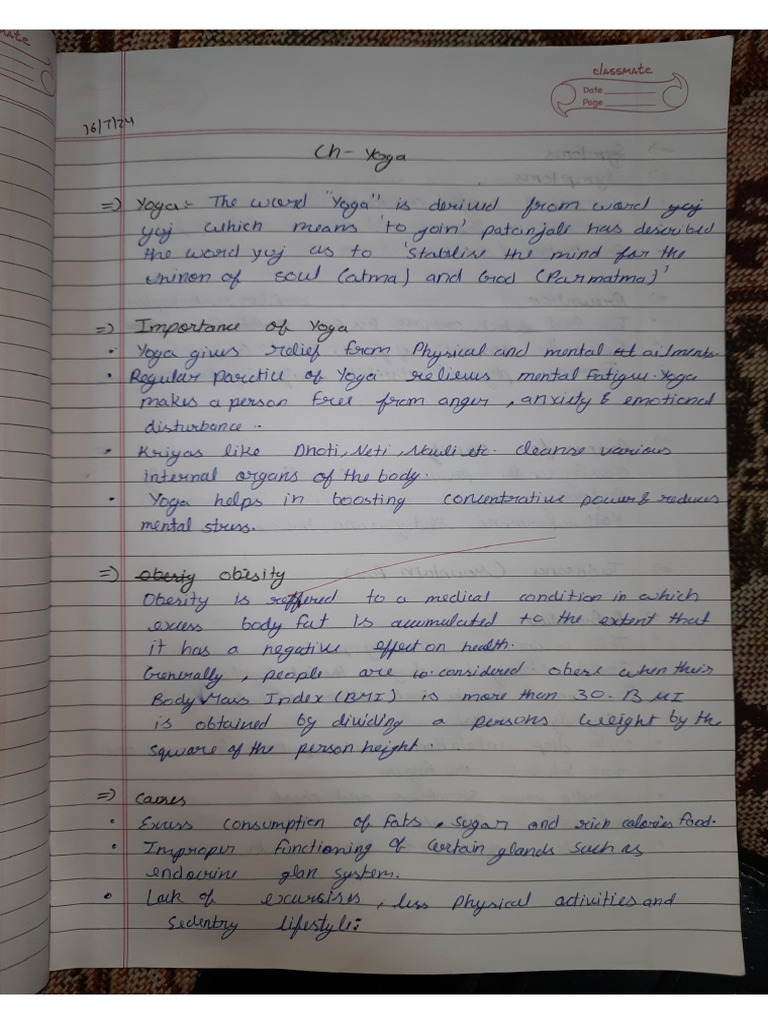 classmate
Date
Page
16/7/24
Ch- Yoga
=) Yoga:- The word "Yoga" is derived from word yuj
yuj which means 'to goin' patanjali has described
the word yuj as to 'stabilise the mind for the
uninon of soul (atma) and God (Parmatma)'
=) Importance of Yoga
• Yoga gives relief from Physical and mental ailments.
• Regular parctice of Yoga relieves mental fatigue. Yoga
makes a person free from anger, anxiety & emotional
disturbance..
• Kriyas like Dhoti, Neti, Nauli etc. cleanse various
internal organs of the body.
• Yoga helps in boosting concentrative power & reduces
mental stress.
=) obesity
Obesity is reffered to a medical condition in which
excess body fat is accumulated to the extent that
it has a negative effect on health.
Generally, people are considered obese when their
Body Mass Index (BMI) is more than 30. BMI
is obtained by dividing a persons weight by the
square of the person height.
=) Causes
• Excess consumption of fats, sugar and rich calories food.
• Improper functioning of certain glands such as
endocrine glan system.
• Lack of excursises, less physical activities and
Sedentry lifestyle: